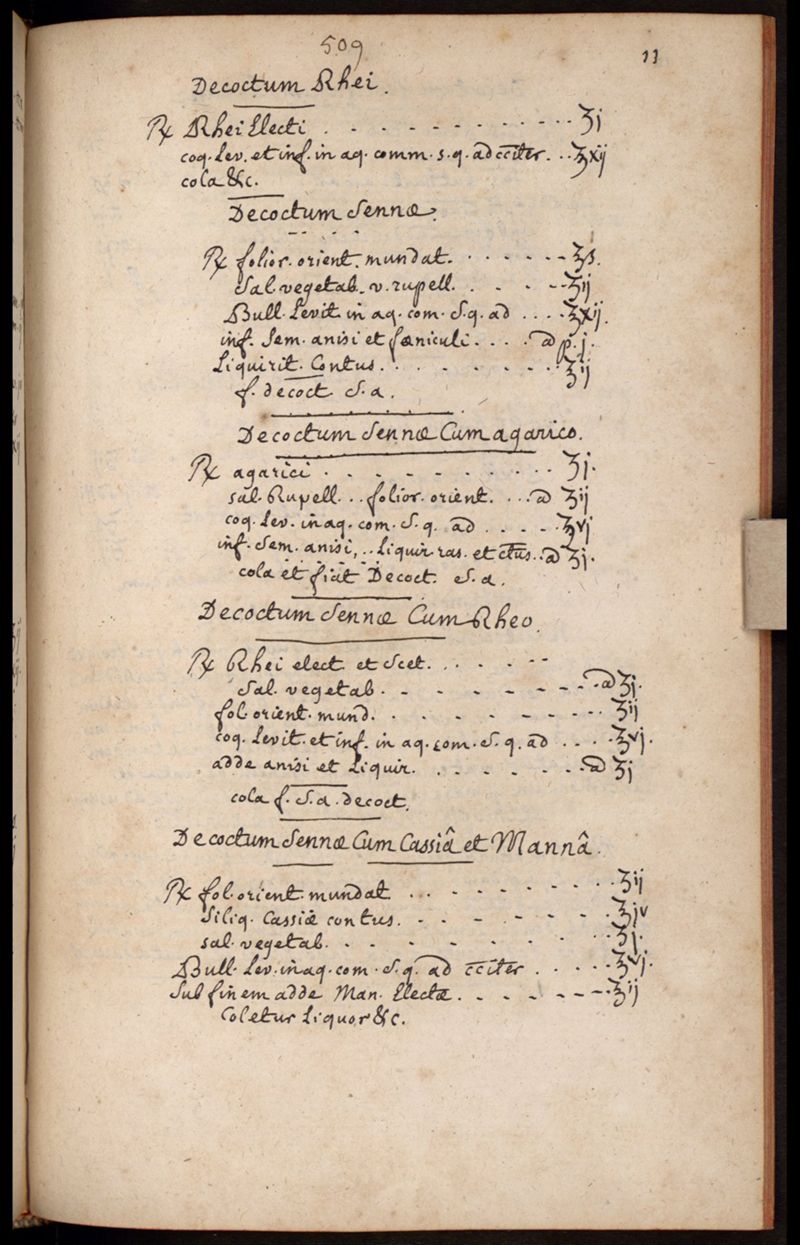 509
11
Decoctum Rhei.
℞ Rhei Electi . - - - - - - - - ʒj
coq. Lev. et inf. in aq. comm. s. q. ad cciter. . . ℥xij
cola &c.
Decoctum Sennæ.
℞ folior. orient. mundat. . . - - - - ℥s.
Sal vegetab. v. rupell. . - - - ʒij
Bull. Levit in aq. com. S. q. ad . . . . ℥xij.
inf. Sem. anisi et fæniculi . . . . a͞ p. j.
Liquirit. Contus. . . - - - - - ʒij
f. decoct. S. a.
Decoctum Sennæ Cum agarico.
℞ agarici . - - - - - - - - ʒj.
sal. Rupell. . . folior. orient. . . . a͞ ʒij
coq. Lev. in aq. com. S. q. ad . . . . ℥vj
inf. Sem. anisi, . . liquir. ras. et ctus. . a͞ ʒj.
cola et fiat Decoct. S. a.
Decoctum Sennæ Cum Rheo.
℞ Rhei elect. et Scet. . . . . - -
Sal. vegetab . - - - - - - - - a͞ ʒj.
fol orient. mund. . . - - - - - - ʒij
coq. Levit. et inf. in aq. com. S. q. ad . . . . ℥vj.
adde anisi et Liquir. . . - - - - . a͞ ʒj
cola f. S. a. decoct.
Decoctum Sennæ Cum Cassiâ et Mannâ.
℞ fol. orient. mundat . . . - - - - - . . ʒij
Siliq. Cassiæ contus. . - - - - - ℥jv
sal. vegetab. . . - - - - - ʒj.
Bull. Lev. in aq. com. S. q. ad cciter . . . . . ℥vj.
Sub finem adde Man. Electæ . . - - - - - ℥ij
Coletur Liquor &c.